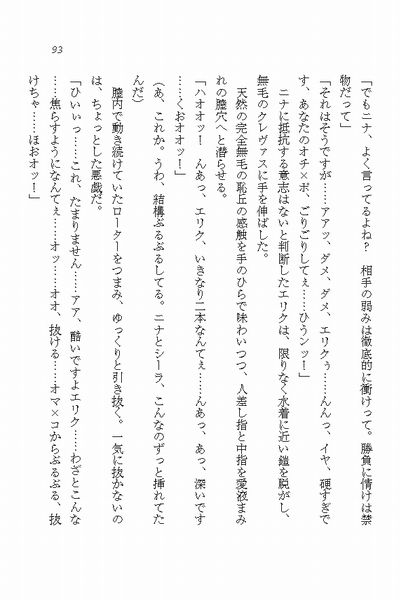 93
「でもニナ、よく言ってるよね？　相手の弱みは徹底的に衝けって。勝負に情けは禁
物だって」
「それはそうですが……アアッ、ダメ、ダメ、エリクぅ……んんっ、イヤ、硬すぎで
す、あなたのオチ×ポ、ごりごりしてぇ……ひうンッ！」
ニナに抵抗する意志はないと判断したエリクは、限りなく水着に近い鎧を脱がし、
無毛のクレヴァスに手を伸ばした。
天然の完全無毛の恥丘の感触を手のひらで味わいつつ、人差し指と中指を愛液まみ
れの膣穴へと潜らせる。
「ハオオッ！　んあっ、エリク、いきなり二本なんてぇ……んあっ、あっ、深いです
……くおオオッ！」
（あ、これか。うわ、結構ぶるぶるしてる。ニナとシーラ、こんなのずっと挿れてた
んだ）
膣内で動き続けていたローターをつまみ、ゆっくりと引き抜く。一気に抜かないの
は、ちょっとした悪戯だ。
「ひいぃっ……これ、たまりません……アア、酷いですよエリク……わざとこんな
……焦らすようになんてぇ……オッ……オオ、抜ける……オマ×コからぶるぶる、抜
けちゃ……ほおオッ！」